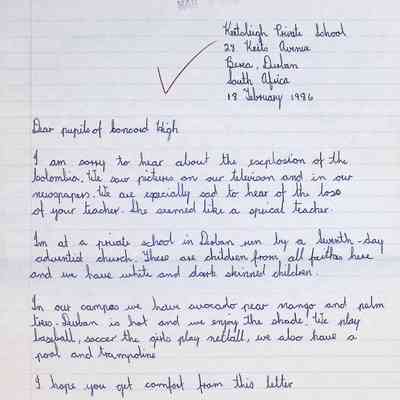 MAR
Keitsleigh Private School
28 Keits Avenue
Berea, Durban
South Africa
18 February 1986
Dear pupils of Concord High
I am sorry to hear about the explosion of the
Colombia. We saw pictures on our televison and in our
newspapers. We are especially sad to hear of the loss
of your teacher. She seemed like a speical teacher.
I'm at a private school in Durban run by a Seventh-day
adventist church. There are children from all faiths here
and we have white and dark skinned children.
In our campus we have avocado pear mango and palm
trees. Durban is hot and we enjoy the shade. We play
baseball, soccer the girls play netball, we also have a
pool and trampoline
I hope you get comfort from this letter